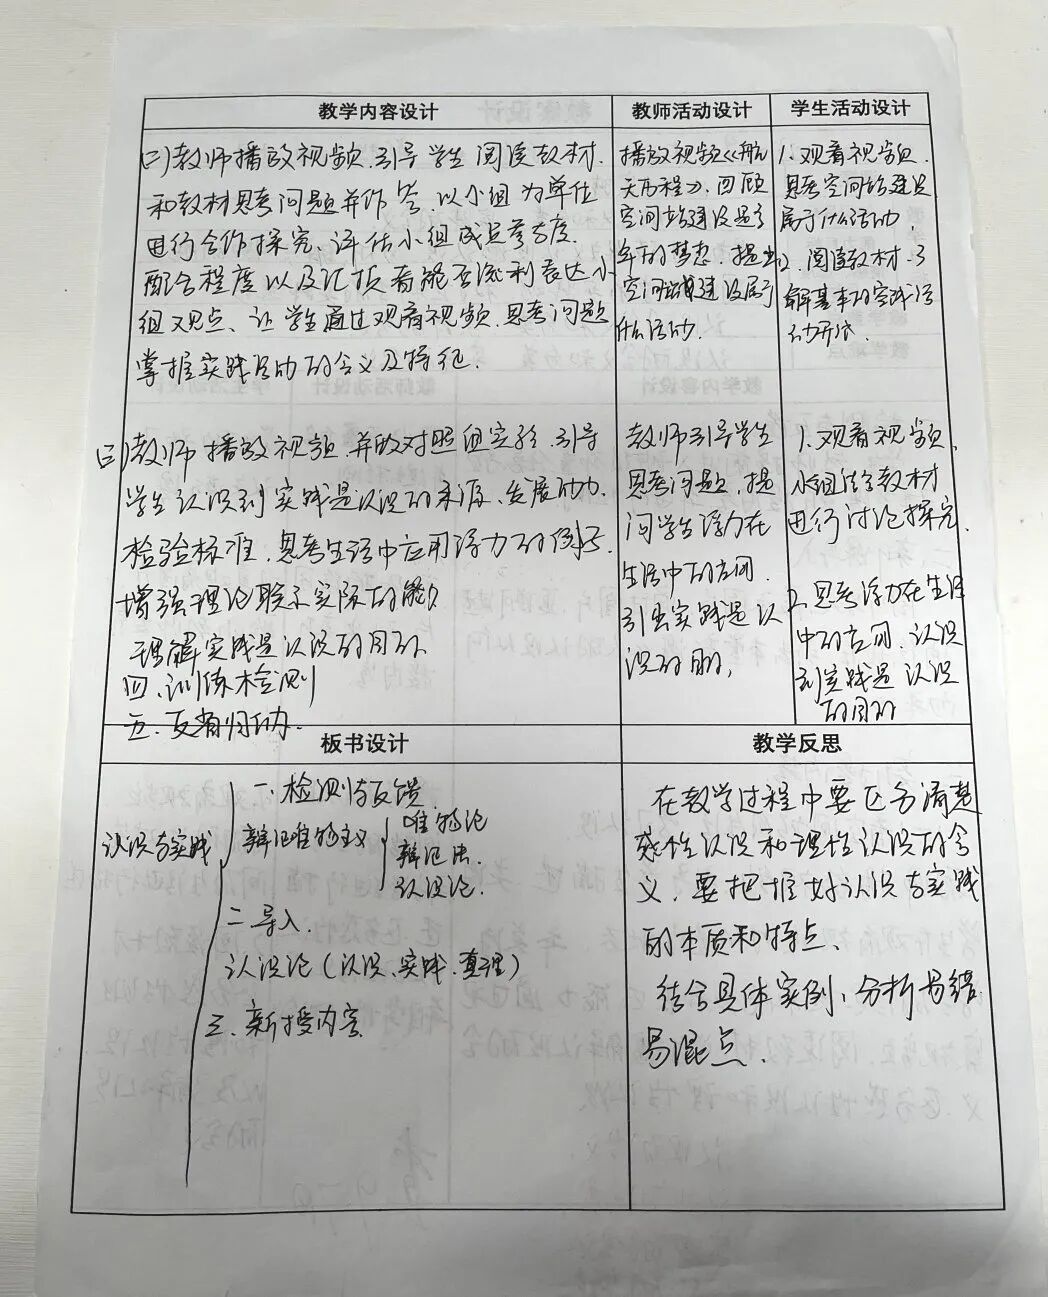 教学内容设计
教师活动设计
学生活动设计
(二)教师播放视频.引导学生阅读教材.
和教材思考问题并作答.以小组为单位
进行合作探究、评估小组成员参与度.
配合程度以及汇报者能否流利表达小
组观点、让学生通过观看视频.思考问题
掌握实践活动的含义及特征.
播放视频《航
天历程》.回顾
空间站建设是多
年的梦想.提出
空间站建设属于
什么活动.
1.观看视频.
思考空间站建设
属于什么活动.
2.阅读教材.了
解基本的实践活
动形式
(三)教师播放视频.并做对照组实验.引导
学生认识到实践是认识的来源、发展动力.
检验标准.思考生活中应用浮力的例子.
增强理论联系实际的能力
理解实践是认识的目的
四.训练检测
五.反省归纳.
教师引导学生
思考问题.提
问学生浮力在
生活中的应用.
引出实践是认
识的目的.
1.观看视频.
小组结合教材
进行讨论探究.
2.思考浮力在生活
中的应用.认识
到实践是认识
的目的
板书设计
教学反思
认识与实践
一.检测与反馈.
辩证唯物主义
唯物论
辩证法.
认识论.
二.导入.
认识论(认识.实践.真理)
三.新授内容
在教学过程中要区分清楚
感性认识和理性认识的含
义.要把握好认识与实践
的本质和特点、
结合具体实例.分析易错.
易混点.